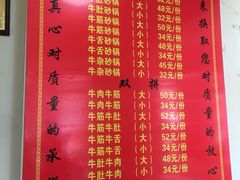 真心对质量的承诺
来换取您对质量的放心
牛肚砂锅（大）50元/份
牛肚砂锅（小）32元/份
牛筋砂锅（大）50元/份
牛筋砂锅（小）32元/份
牛舌砂锅（大）48元/份
牛舌砂锅（小）32元/份
牛杂砂锅（大）45元/份
牛杂砂锅（小）32元/份
双拼
牛肉牛筋（大）50元/份
牛肉牛筋（小）34元/份
牛筋牛舌（大）52元/份
牛筋牛舌（小）34元/份
牛肚牛筋（大）52元/份
牛肚牛筋（小）34元/份
牛肚牛舌（大）52元/份
牛肚牛舌（小）34元/份
牛肚牛肉（大）48元/份
牛肚牛肉（小）34元/份